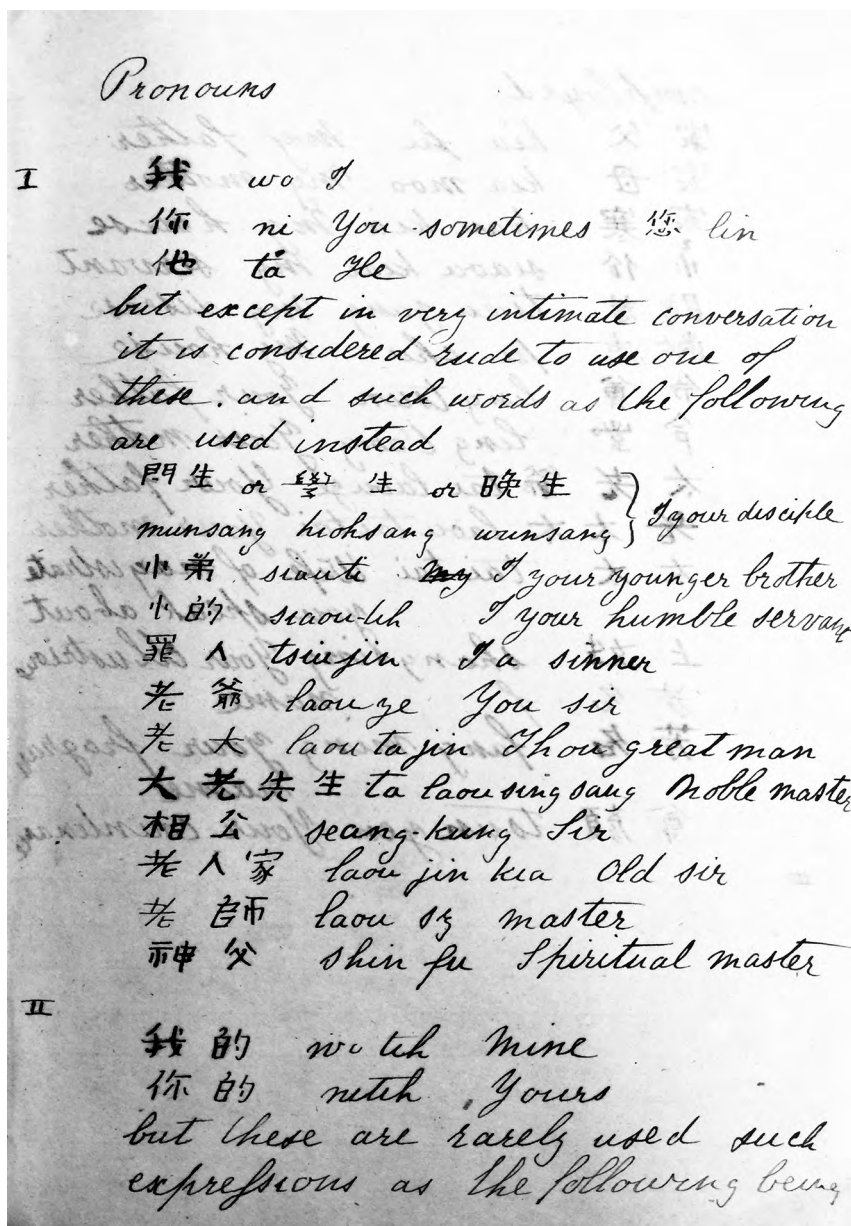 Pronouns
I 我 wo I
你 ni You sometimes 您 lin
他 ta He
but except in very intimate conversation
it is considered rude to use one of
these. and such words as the following
are used instead
門生 or 學生 or 晚生
munsang hiohsang wunsang } I your disciple
小弟 siauti I your younger brother
小的 siaou-teh I your humble servant
罪人 tsiujin I a sinner
老爺 laou ye You sir
老大 laou ta jin Thou great man
大老先生 ta laou sing sang Noble master
相公 seang-kung Sir
老人家 laou jin kia Old sir
老師 laou sz master
神父 shin fu Spiritual master
II
我的 wo teh Mine
你的 niteh Yours
but these are rarely used such
expressions as the following being